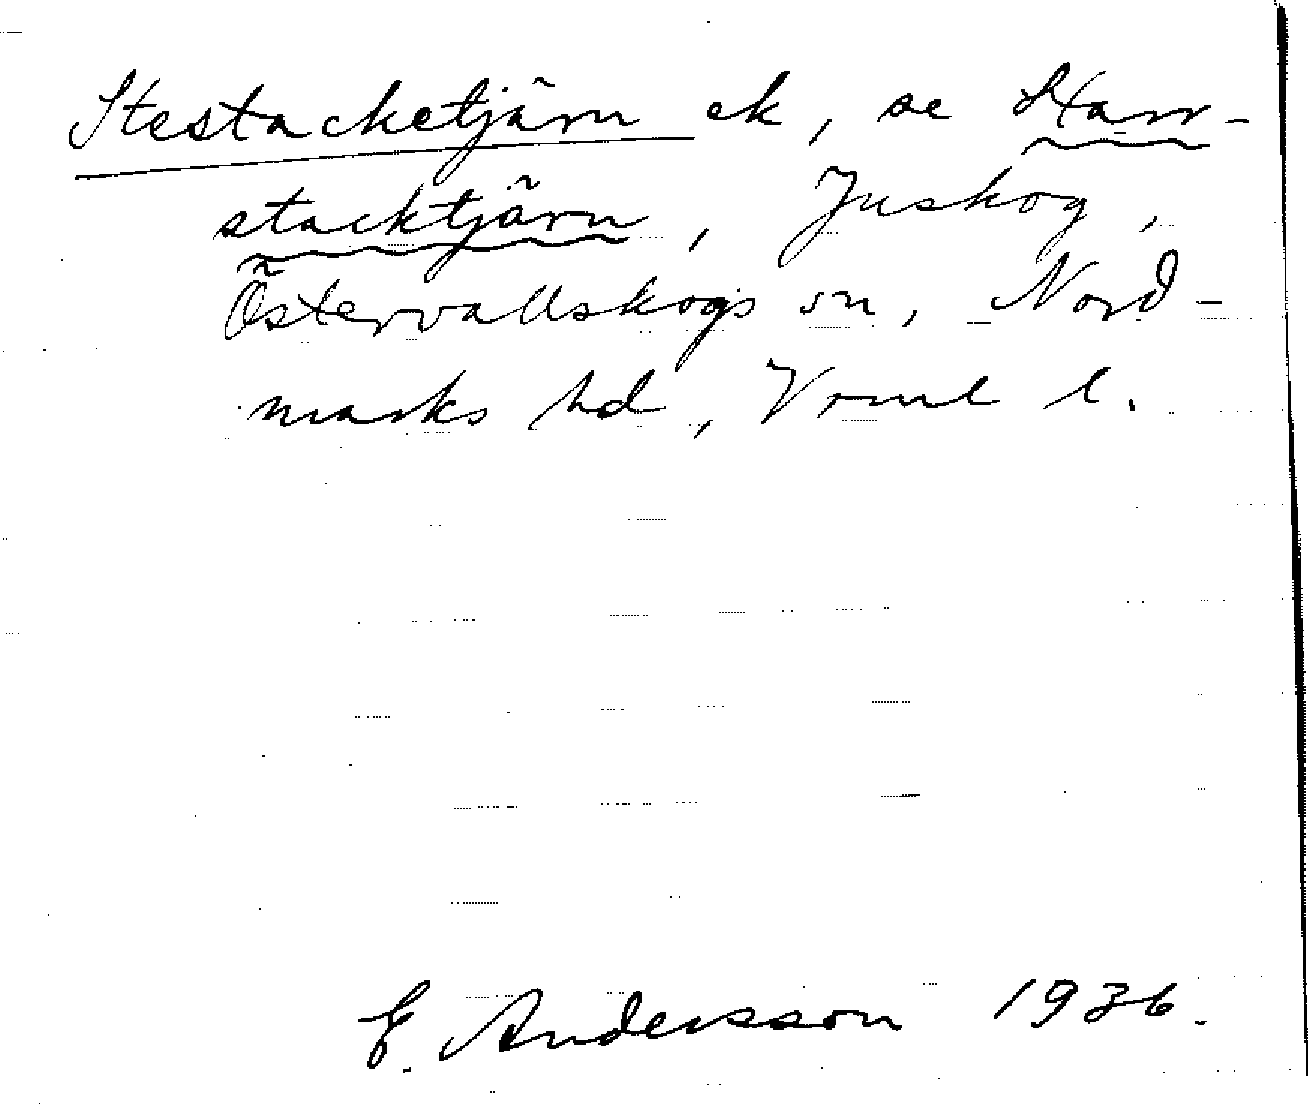 Stestacketjärn ek, se Starr-
stacktjärn, Juskog,
Östervallskogs sn, Nord-
marks hd, Vrml l.
E. Andersson 1936.